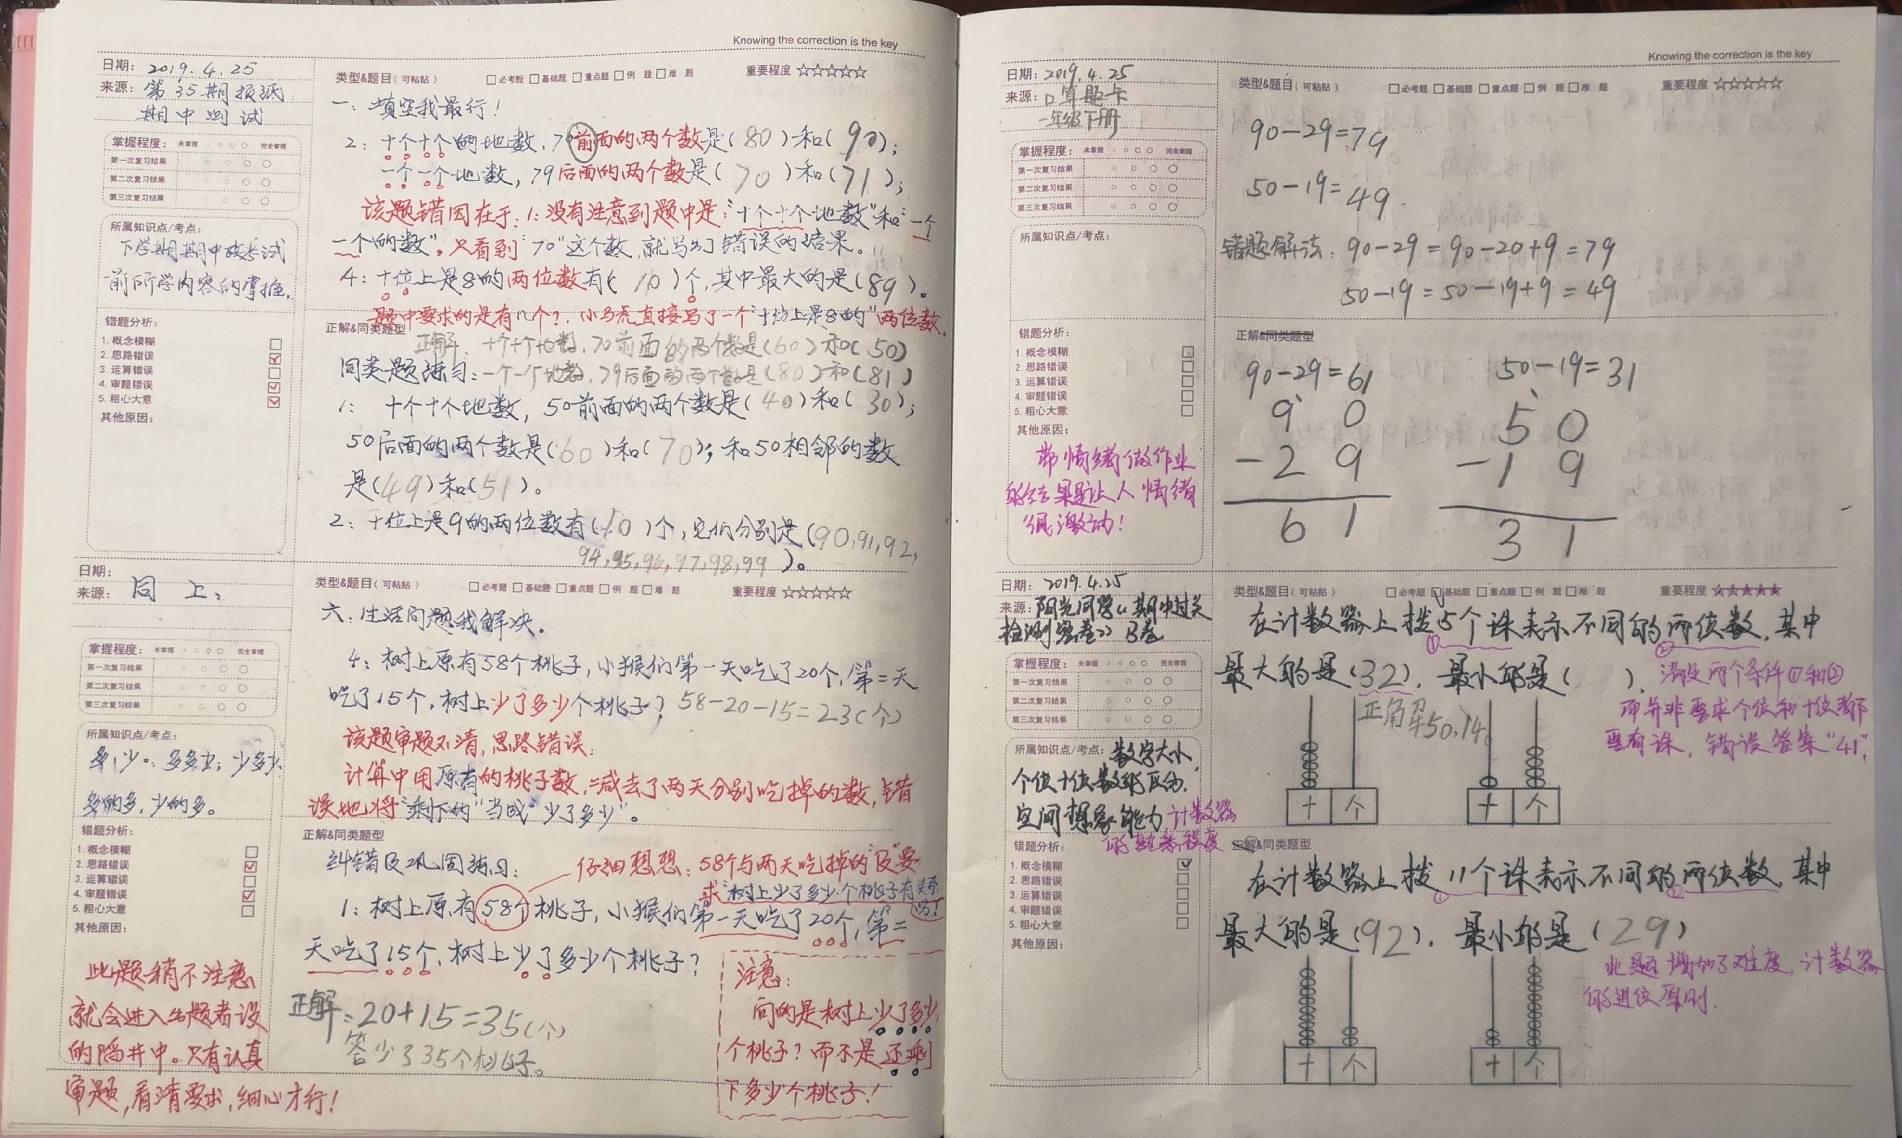 Knowing the correction is the key
日期: 2019.4.25
来源: 第35期报纸
期中测试
类型&题目(可粘贴) □必考题 □基础题 □重点题 □例 题 □难 题 重要程度 ☆☆☆☆☆
一、填空我最行!
2: 十个十个的地数, 70前面的两个数是(80)和(90);
一个一个地数, 79后面的两个数是(70)和(71);
该题错因在于: 1: 没有注意到题中是:"十个十个地数"和"一个
一个的数", 只看到"70"这个数, 就写出了错误的结果。
4: 十位上是8的两位数有(10)个, 其中最大的是(89)。
题中要求的是有几个?, 小马虎直接写了一个"十位上是8的"两位数.
掌握程度: 未掌握 完全掌握
第一次复习结果
第二次复习结果
第三次复习结果
所属知识点/考点:
下学期期中考试
前所学内容的掌握.
错题分析:
1. 概念模糊
2. 思路错误
3. 运算错误
4. 审题错误
5. 粗心大意
其他原因:
正解&同类题型
正解: 十个十个地数, 70前面的两个数是(60)和(50)
同类题练习: 一个一个地数, 79后面的两个数是(80)和(81)
1: 十个十个地数, 50前面的两个数是(40)和(30);
50后面的两个数是(60)和(70); 和50相邻的数
是(49)和(51)。
2: 十位上是9的两位数有(10)个, 它们分别是(90,91,92,
94,95,96,97,98,99)。
日期:
来源: 同 上:
类型&题目(可粘贴) □必考题 □基础题 □重点题 □例 题 □难 题 重要程度 ☆☆☆☆☆
六. 生活问题我解决.
4: 树上原有58个桃子, 小猴们第一天吃了20个, 第二天
吃了15个, 树上少了多少个桃子? 58-20-15=23(个)
该题审题不清, 思路错误:
计算中用原有的桃子数, 减去了两天分别吃掉的数, 错
误地将"剩下的"当成"少了多少"。
掌握程度: 未掌握 完全掌握
第一次复习结果
第二次复习结果
第三次复习结果
所属知识点/考点:
多,少。多多少; 少多少.
多的多, 少的多。
错题分析:
1. 概念模糊
2. 思路错误
3. 运算错误
4. 审题错误
5. 粗心大意
其他原因:
此题稍不注意
就会进入出题者设
的陷井中。只有认真
审题, 看清要求, 细心才行!
正解&同类题型
纠错及巩固练习:
仔细想想: 58个与两天吃掉的"及"要
求"树上少了多少个桃子有关系
吗?
1: 树上原有58个桃子, 小猴们第一天吃了20个, 第二
天吃了15个, 树上少了多少个桃子?
正解: 20+15=35(个)
答少了35个桃子。
注意:
问的是树上少了多少
个桃子? 而不是还剩
下多少个桃子!
Knowing the correction is the key
日期: 2019.4.25
来源: 口算题卡
一年级下册
类型&题目(可粘贴) □必考题 □基础题 □重点题 □例 题 □难 题 重要程度 ☆☆☆☆☆
90-29=79
50-19=49.
错题解法: 90-29=90-20+9=79
50-19=50-19+9=49
掌握程度: 未掌握 完全掌握
第一次复习结果
第二次复习结果
第三次复习结果
所属知识点/考点:
错题分析:
1. 概念模糊
2. 思路错误
3. 运算错误
4. 审题错误
5. 粗心大意
其他原因:
带情绪做作业
的结果是让人情绪
很激动!
正解&同类题型
90-29=61 50-19=31
9 0 5 0
-2 9 -1 9
6 1 3 1
日期: 2019.4.25
来源: 阳光同学《期中过关
检测密卷》B卷
类型&题目(可粘贴) □必考题 □基础题 □重点题 □例 题 □难 题 重要程度 ★★★★★
在计数器上拨5个珠表示不同的两位数, 其中
① ②
最大的是(32), 最小的是( ).
正解50,14。
满足两个条件①和②
而并非要求个位和十位都
要有珠, 错误答案"41".
十 个 十 个
掌握程度: 未掌握 完全掌握
第一次复习结果
第二次复习结果
第三次复习结果
所属知识点/考点: 数字大小,
个位十位数的区分.
空间想象能力 计数器
的熟悉程度
错题分析:
1. 概念模糊
2. 思路错误
3. 运算错误
4. 审题错误
5. 粗心大意
其他原因:
正解&同类题型
在计数器上拨11个珠表示不同的两位数, 其中
① ②
最大的是(92), 最小的是(29)
此题增加了难度, 计数器
的进位原则.
十 个 十 个